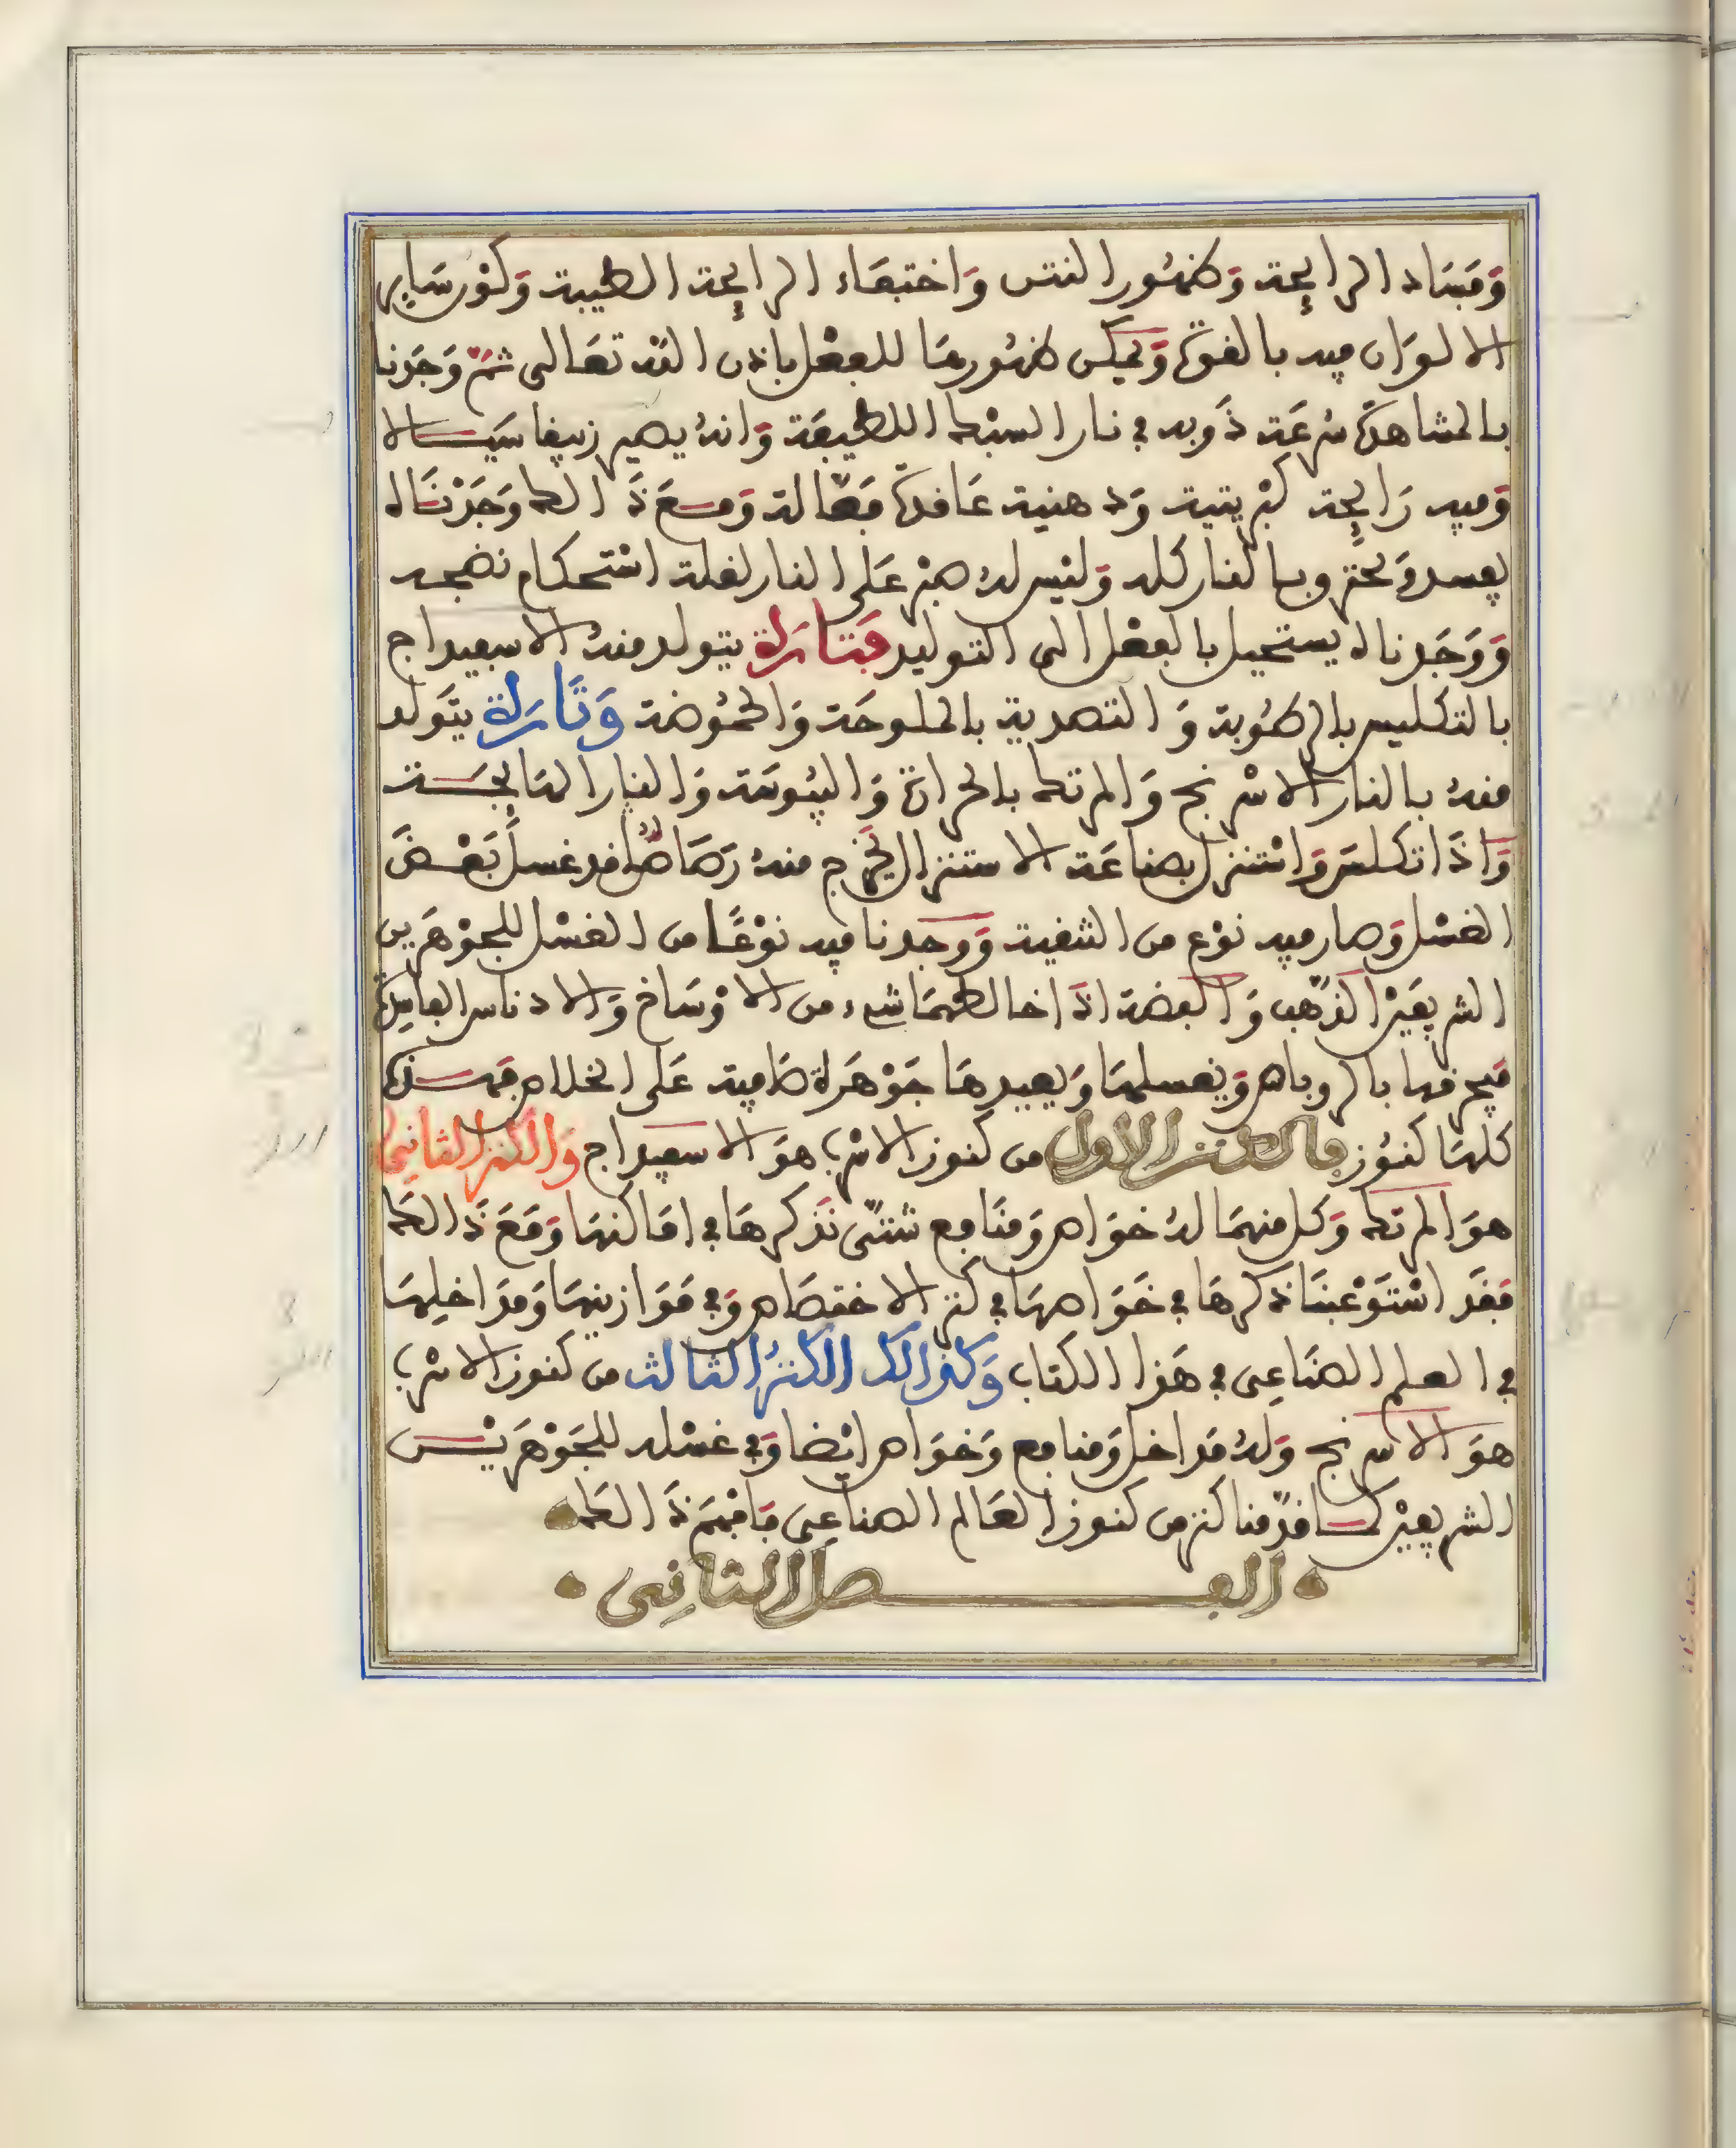 وَفَسَاد الرايحة وَظهُور النتن وَاختفَاء الرايحة الطيبة وَكوْن سَاير
الالوَان فيه بالقوة وَيمكن ظهُورهَا للفعْل باذن الله تعَالى ثمّ وَجَدنا
بالمشاهدة سُرعَة ذَوبه في نار السبْك اللطيفَة وَانهُ يصير زيبقا سَيــالا
وَفيه رَايحة كبْريتية وَدهنية عَاقدة فعّالة وَمــعَ ذَالك وَجَدْنَاه
يفسد وَيحترق بالنار كله وَليْس لهُ صبْر عَلى النار لقلة اسْتحكام نضجه
وَوَجَدناه يستحيل بالفعْل الى التوليد فتَارَة يتولد منهُ الاسفيداج
بالتكليس بالرطُوبة وَالتصدية بالملوحَة وَالحمُوضة وَتَارَة يتَولد
منهُ بالنار الاسْرنج وَالمرتك بالحرارة وَاليبُوسَة وَالنار الهَايجَــة
وَاذَا تكلسَ وَاسْتنزل بصناعَة الاستنزال يخرج منه رَصَاصًا قد غسلَ بَعْـضَ
الغسْل وَصار فيه نوْع من التنقية وَوَجدنا فيه نوْعًا من الغسْل للجوْهَرين
الشريفيْن الذهب وَالفضة اذَا خالطهمَا شيء من الاوْسَاخ وَالادناس الفاسِدة
فيحرقها بالروباص وَيغسلهمَا وَيعيدهَا جَوْهَرَة صَافية عَلى الخلاص فهــذه
كلهَا كنُوز فالكنــز الاول من كنوز الاسْرب هوَ الاسفيداج وَالكنز الثاني
هوَ المرتك وَكل منهمَا لهُ خوَاص وَمنَافع شتىّ نذكرهَا في امَاكنهَا وَمَعَ ذَالكَ
فقَد اسْتَوْعبنَا ذكرهَا في خَوَاصهَا في كنز الاختصَاص وَفي مَوَازينهَا وَمدَاخلِهَا
في العلم الصنَاعِى في هَذا الكتاب وَكذالك الكنزُ الثالث من كنوز الاسْرب
هوَ الاسْرنج وَلهُ مدَاخل وَمنافع وَخوَاص ايْضا وَفي غسْله للجَوْهَريْــن
الشريفيْن كــما قدّمنا كنز من كنوز العَالم الصناعِى فافهَمْ ذَالكَ
الفــــصل الثانِى